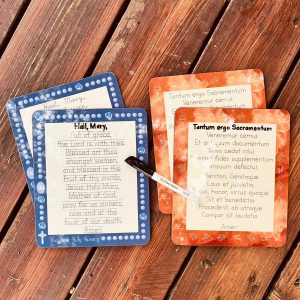 Hail, Mary,
Tantum ergo Sacramentum
Veneremur cernui
Hail, Mary,
Full of grace,
the Lord is with thee
Blessed art thou
amongst women,
and blessed is the
fruit of thy womb,
Jesus. Holy Mary,
Mother of God,
pray for us sinners,
now and at the
hour of our death.
Amen.
Tantum ergo Sacramentum
Veneremur cernui
Et antiquum documentum
Novo cedat ritui
fides supplementum
Sensuum defectui
Genitori, Genitoque
Laus et jubilatio,
Salus, honor, virtus quoque
Sit et benedictio
Procedenti ab utroque
Compar sit laudatio
Amen